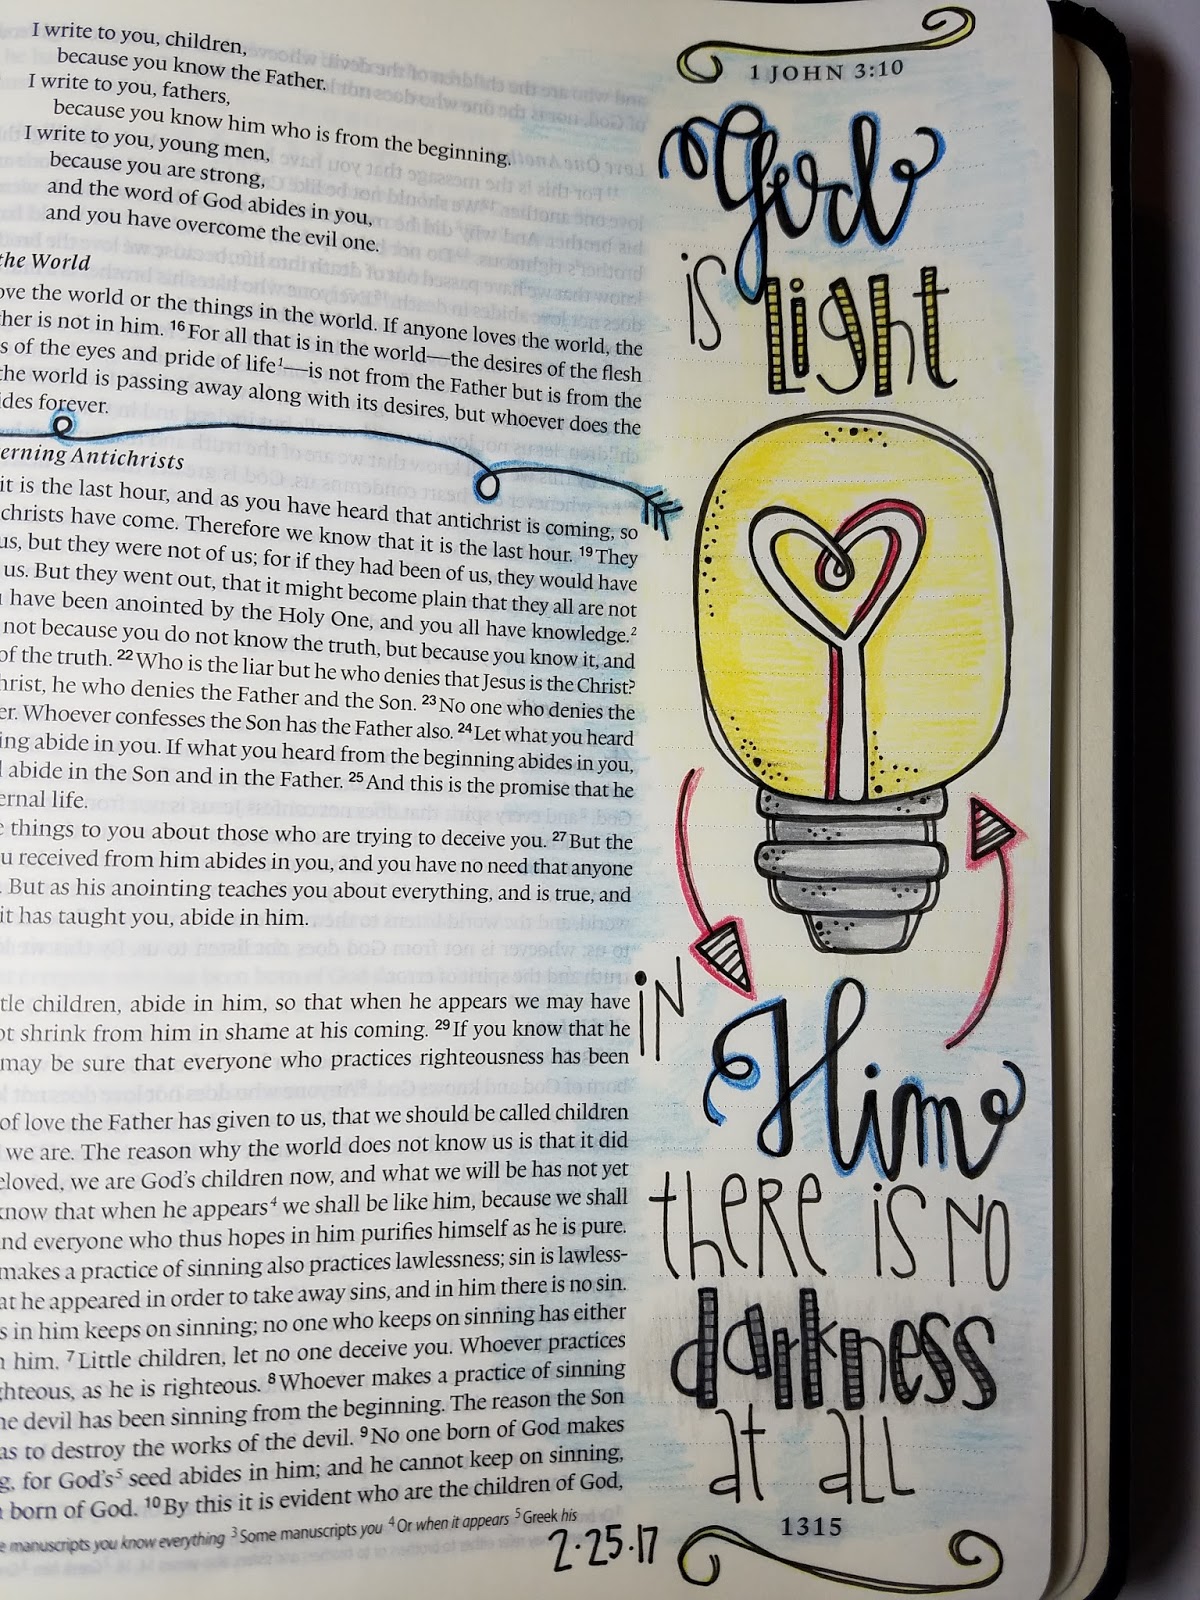 I write to you, children,
because you know the Father.
I write to you, fathers,
because you know him who is from the beginning.
I write to you, young men,
because you are strong,
and the word of God abides in you,
and you have overcome the evil one.
the World
the world or the things in the world. If anyone loves the world, the
is not in him. 16 For all that is in the world—the desires of the flesh
of the eyes and pride of life1—is not from the Father but is from the
the world is passing away along with its desires, but whoever does the
forever.
Antichrists
it is the last hour, and as you have heard that antichrist is coming, so
have come. Therefore we know that it is the last hour. 19 They
us, but they were not of us; for if they had been of us, they would have
us. But they went out, that it might become plain that they all are not
have been anointed by the Holy One, and you all have knowledge.2
not because you do not know the truth, but because you know it, and
of the truth. 22 Who is the liar but he who denies that Jesus is the Christ?
he who denies the Father and the Son. 23 No one who denies the
Whoever confesses the Son has the Father also. 24 Let what you heard
abide in you. If what you heard from the beginning abides in you,
abide in the Son and in the Father. 25 And this is the promise that he
life.
things to you about those who are trying to deceive you. 27 But the
received from him abides in you, and you have no need that anyone
But as his anointing teaches you about everything, and is true, and
it has taught you, abide in him.
children, abide in him, so that when he appears we may have
shrink from him in shame at his coming. 29 If you know that he
may be sure that everyone who practices righteousness has been
of love the Father has given to us, that we should be called children
we are. The reason why the world does not know us is that it did
we are God's children now, and what we will be has not yet
know that when he appears4 we shall be like him, because we shall
everyone who thus hopes in him purifies himself as he is pure.
makes a practice of sinning also practices lawlessness; sin is lawless-
he appeared in order to take away sins, and in him there is no sin.
in him keeps on sinning; no one who keeps on sinning has either
him. 7 Little children, let no one deceive you. Whoever practices
as he is righteous. 8 Whoever makes a practice of sinning
devil has been sinning from the beginning. The reason the Son
to destroy the works of the devil. 9 No one born of God makes
for God's5 seed abides in him; and he cannot keep on sinning,
born of God. 10 By this it is evident who are the children of God,
manuscripts you know everything 3 Some manuscripts you 4 Or when it appears 5 Greek his
2·25·17
1 JOHN 3:10
God
is Light
in
Him
there is no
darkness
at all
1315